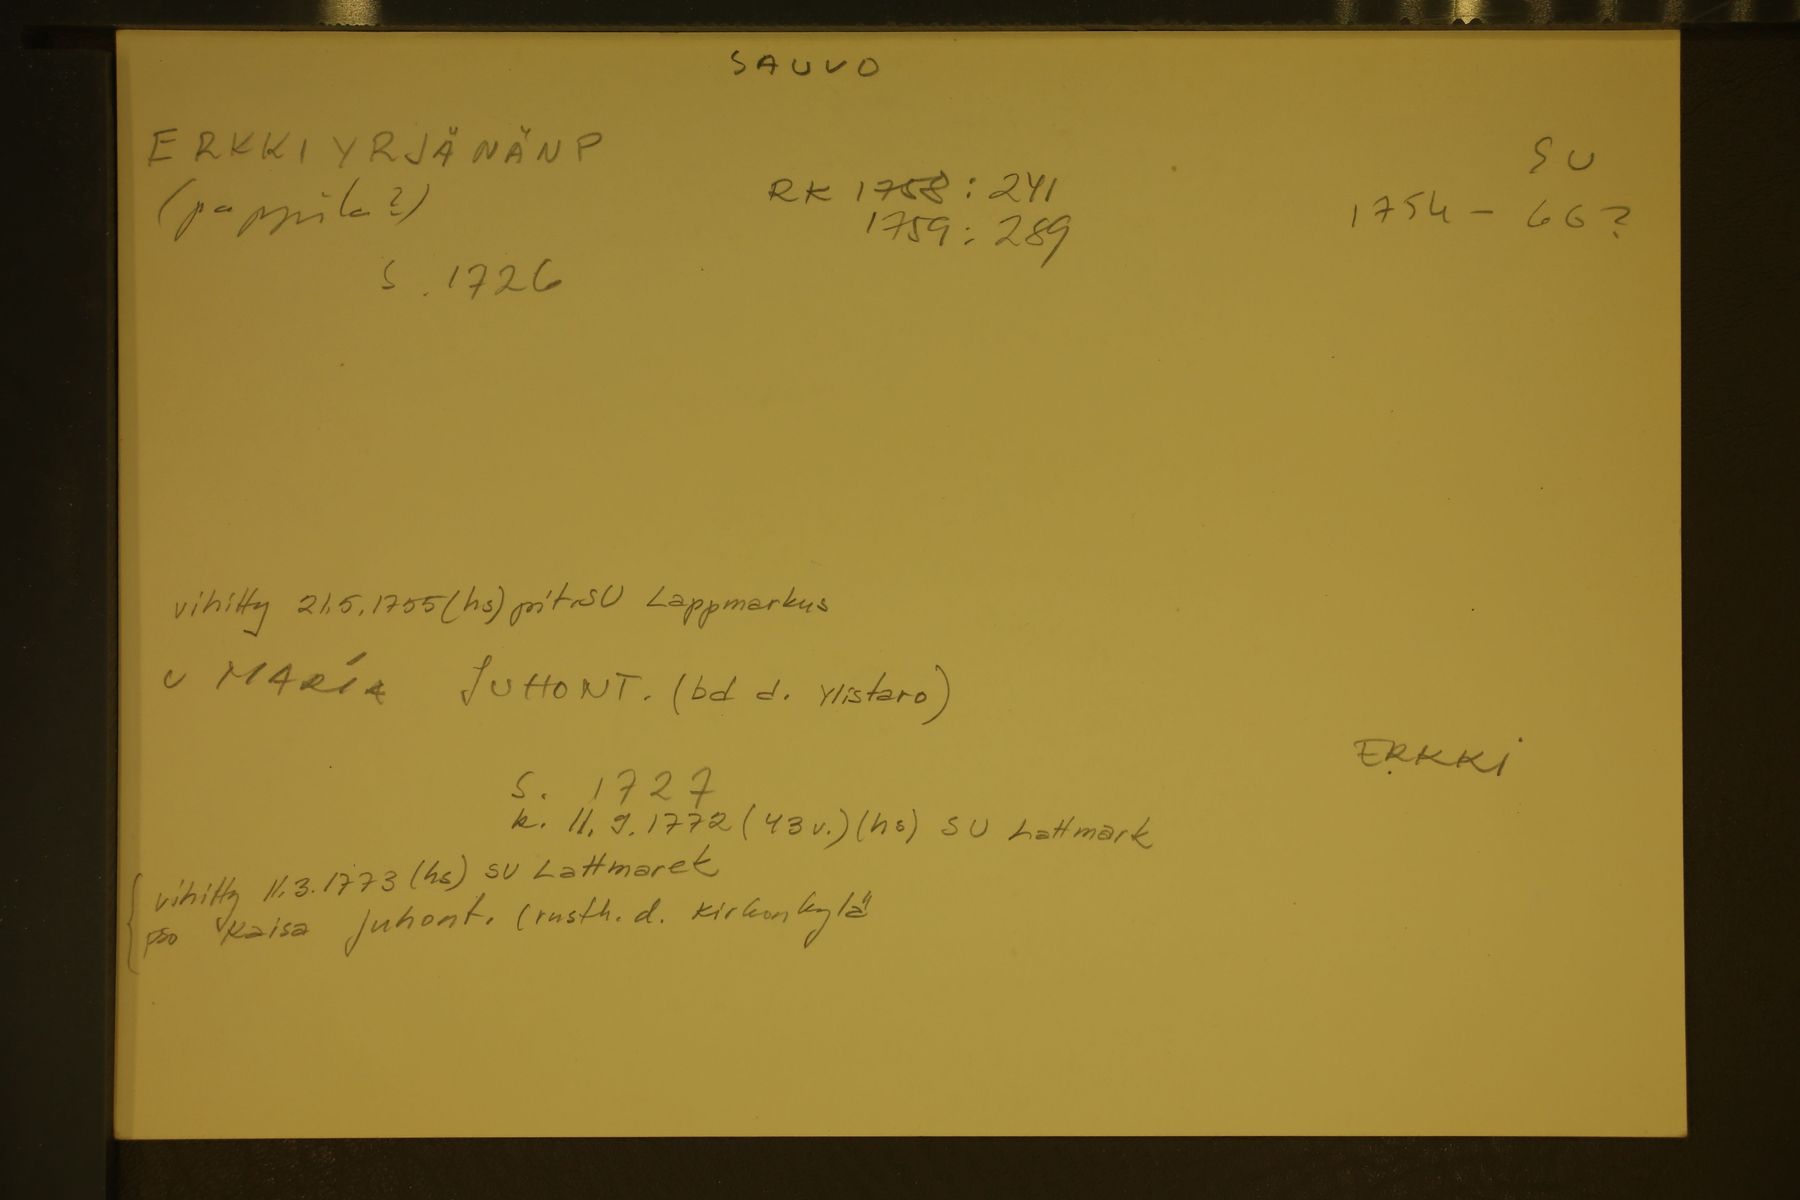 SAUVO
ERKKI YRJÄNÄNP
(pappila?)
s. 1726
RK 1758: 241
1759: 289
SU
1754 - 66?
vihitty 21.5.1755 (hs) pit. SU Lappmarkus
v MARIA JUHONT. (bd d. Ylistaro)
ERKKI
s. 1727
k. 11.9.1772 (43 v.) (hs) SU Lattmark
vihitty 11.3.1773 (hs) SU Lattmarek
pso Kaisa Juhont. (rusth. d. Kirkonkylä